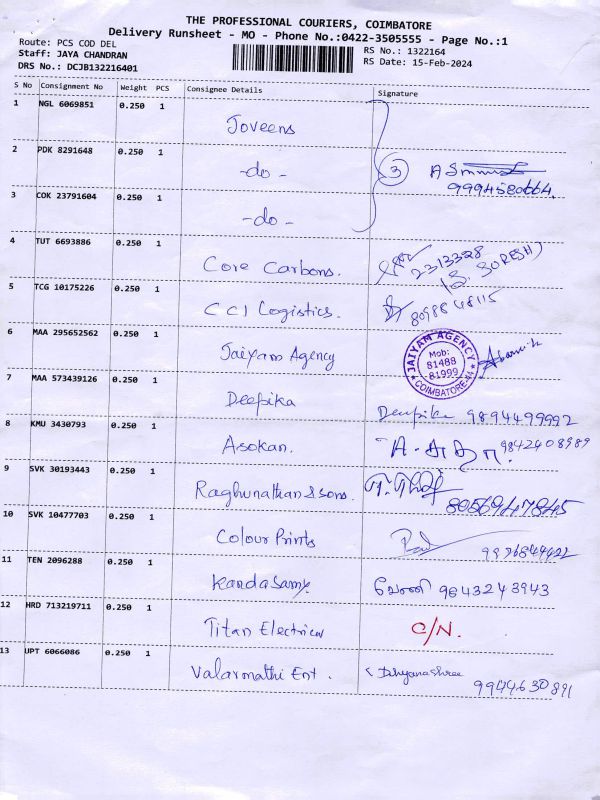 THE PROFESSIONAL COURIERS, COIMBATORE
Delivery Runsheet - MO - Phone No.:0422-3505555 - Page No.:1
Route: PCS COD DEL
RS No.: 1322164
Staff: JAYA CHANDRAN
RS Date: 15-Feb-2024
DRS No.: DCJB132216401
S No Consignment No Weight PCS Consignee Details Signature
1 NGL 6069851 0.250 1 Joveens
2 PDK 8291648 0.250 1 -do- 3
9994580664.
3 COK 23791604 0.250 1 -do-
4 TUT 6693886 0.250 1 Core Carbons. 2313328
(S. SURESH)
5 TCG 10175226 0.250 1 CCI Logistics. 8098848115
6 MAA 295652562 0.250 1 Jaiyam Agency
JAIYAM AGENCY
Mob:
81488
81999
COIMBATORE-
7 MAA 573439126 0.250 1 Deepika Deepika 9894499992
8 KMU 3430793 0.250 1 Asokan. 9842408989
9 SVK 30193443 0.250 1 Raghunathan & sons. 8056947845
10 SVK 10477703 0.250 1 Colour Prints 9976844422
11 TEN 2096288 0.250 1 Kandasamy. வேணி 9843243943
12 HRD 713219711 0.250 1 Titan Electrical C/N.
13 UPT 6066086 0.250 1 Valarmathi Ent. Dhyanashree
9944630891